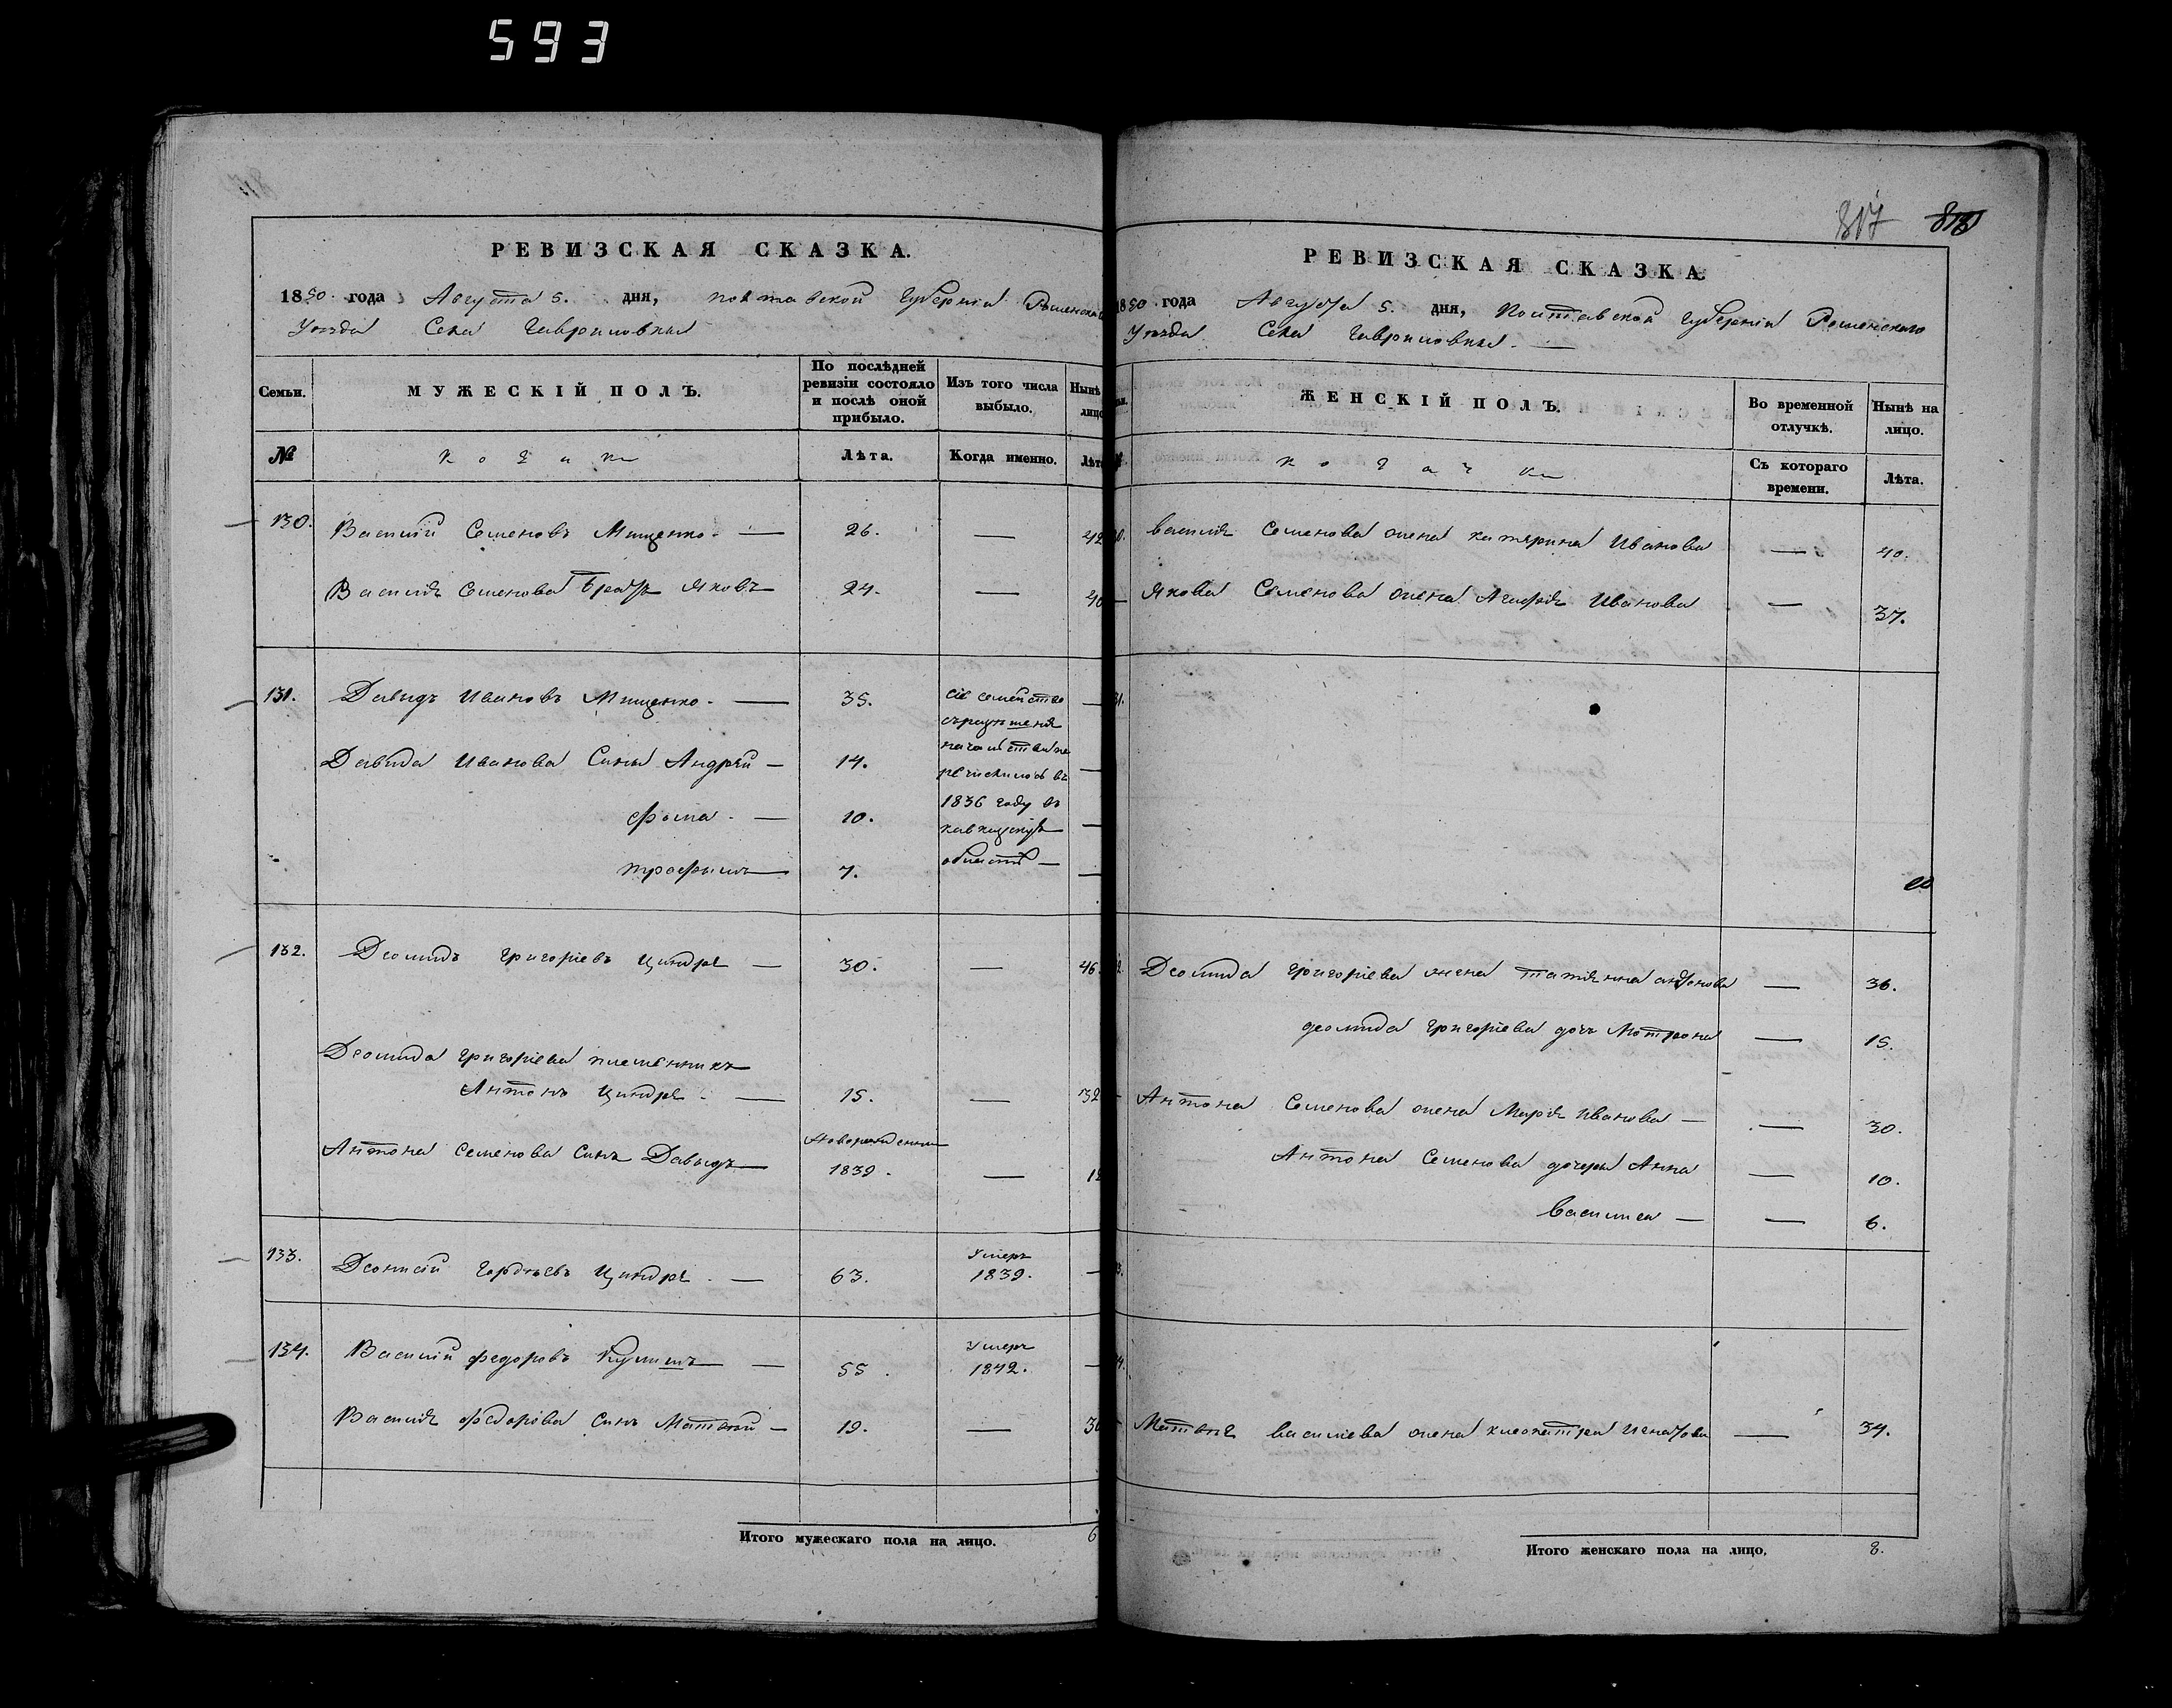 593
РЕВИЗСКАЯ СКАЗКА.
1850 года Августа 5. дня, Полтавской Губернiи Роменска
Уѣзда Села Гавриловки
Семьи.
МУЖЕСКІЙ ПОЛЪ.
По послѣдней ревизіи состояло и послѣ оной прибыло.
Изъ того числа выбыло.
Нынѣ лицо
№
Козаки
Лѣта.
Когда именно.
Лѣта
130. Василiй Семеновъ Мищенко. — 26. — 42
Василiя Семенова братъ Яковъ 24. — 40
131. Давыдъ Ивановъ Мищенко. — 35. сiе семейство —
съ
Давида Иванова Сины Андрѣй — 14. —
речислилось въ
Фома. — 10. 1836 году въ —
Трофимъ 7. —
132. Деомидъ Григорiевъ Циндря — 30. — 46.
Деомида Григорiева племенникъ
Антонъ Циндря — 15. — 32
Антона Семенова Синъ Давыдъ — новорожденны
1839. —
133. Деонисiй Гордѣевъ Циндря. — 63. Умеръ 1839. —
134. Василiй Федоровъ Кулишъ — 55. Умеръ 1842. —
Василiя Федорова Синъ Матвѣй — 19. —
Итого мужескаго пола на лицо. 6
817
РЕВИЗСКАЯ СКАЗКА.
1850 года Августа 5. дня, Полтавской Губернiи Роменскаго
Уѣзда Села Гавриловки. —
ЖЕНСКІЙ ПОЛЪ.
Во временной отлучкѣ.
Нынѣ на лицо.
Козачки
Съ котораго времени.
Лѣта.
Василiя Семенова жена Катерина Иванова — 40.
Якова Семенова жена Агафiя Иванова — 37.
Деомида Григорiева жена Татiянна Антонова — 36.
Деомида Григорiева дочь Мотрона — 15.
Антона Семенова жена Марiя Иванова — — 30.
Антона Семенова дочеры Анна — 10.
Василиса — — 6.
Матвѣя Василiева жена Клеопатра Игнатова — 34.
Итого женскаго пола на лицо, 8.